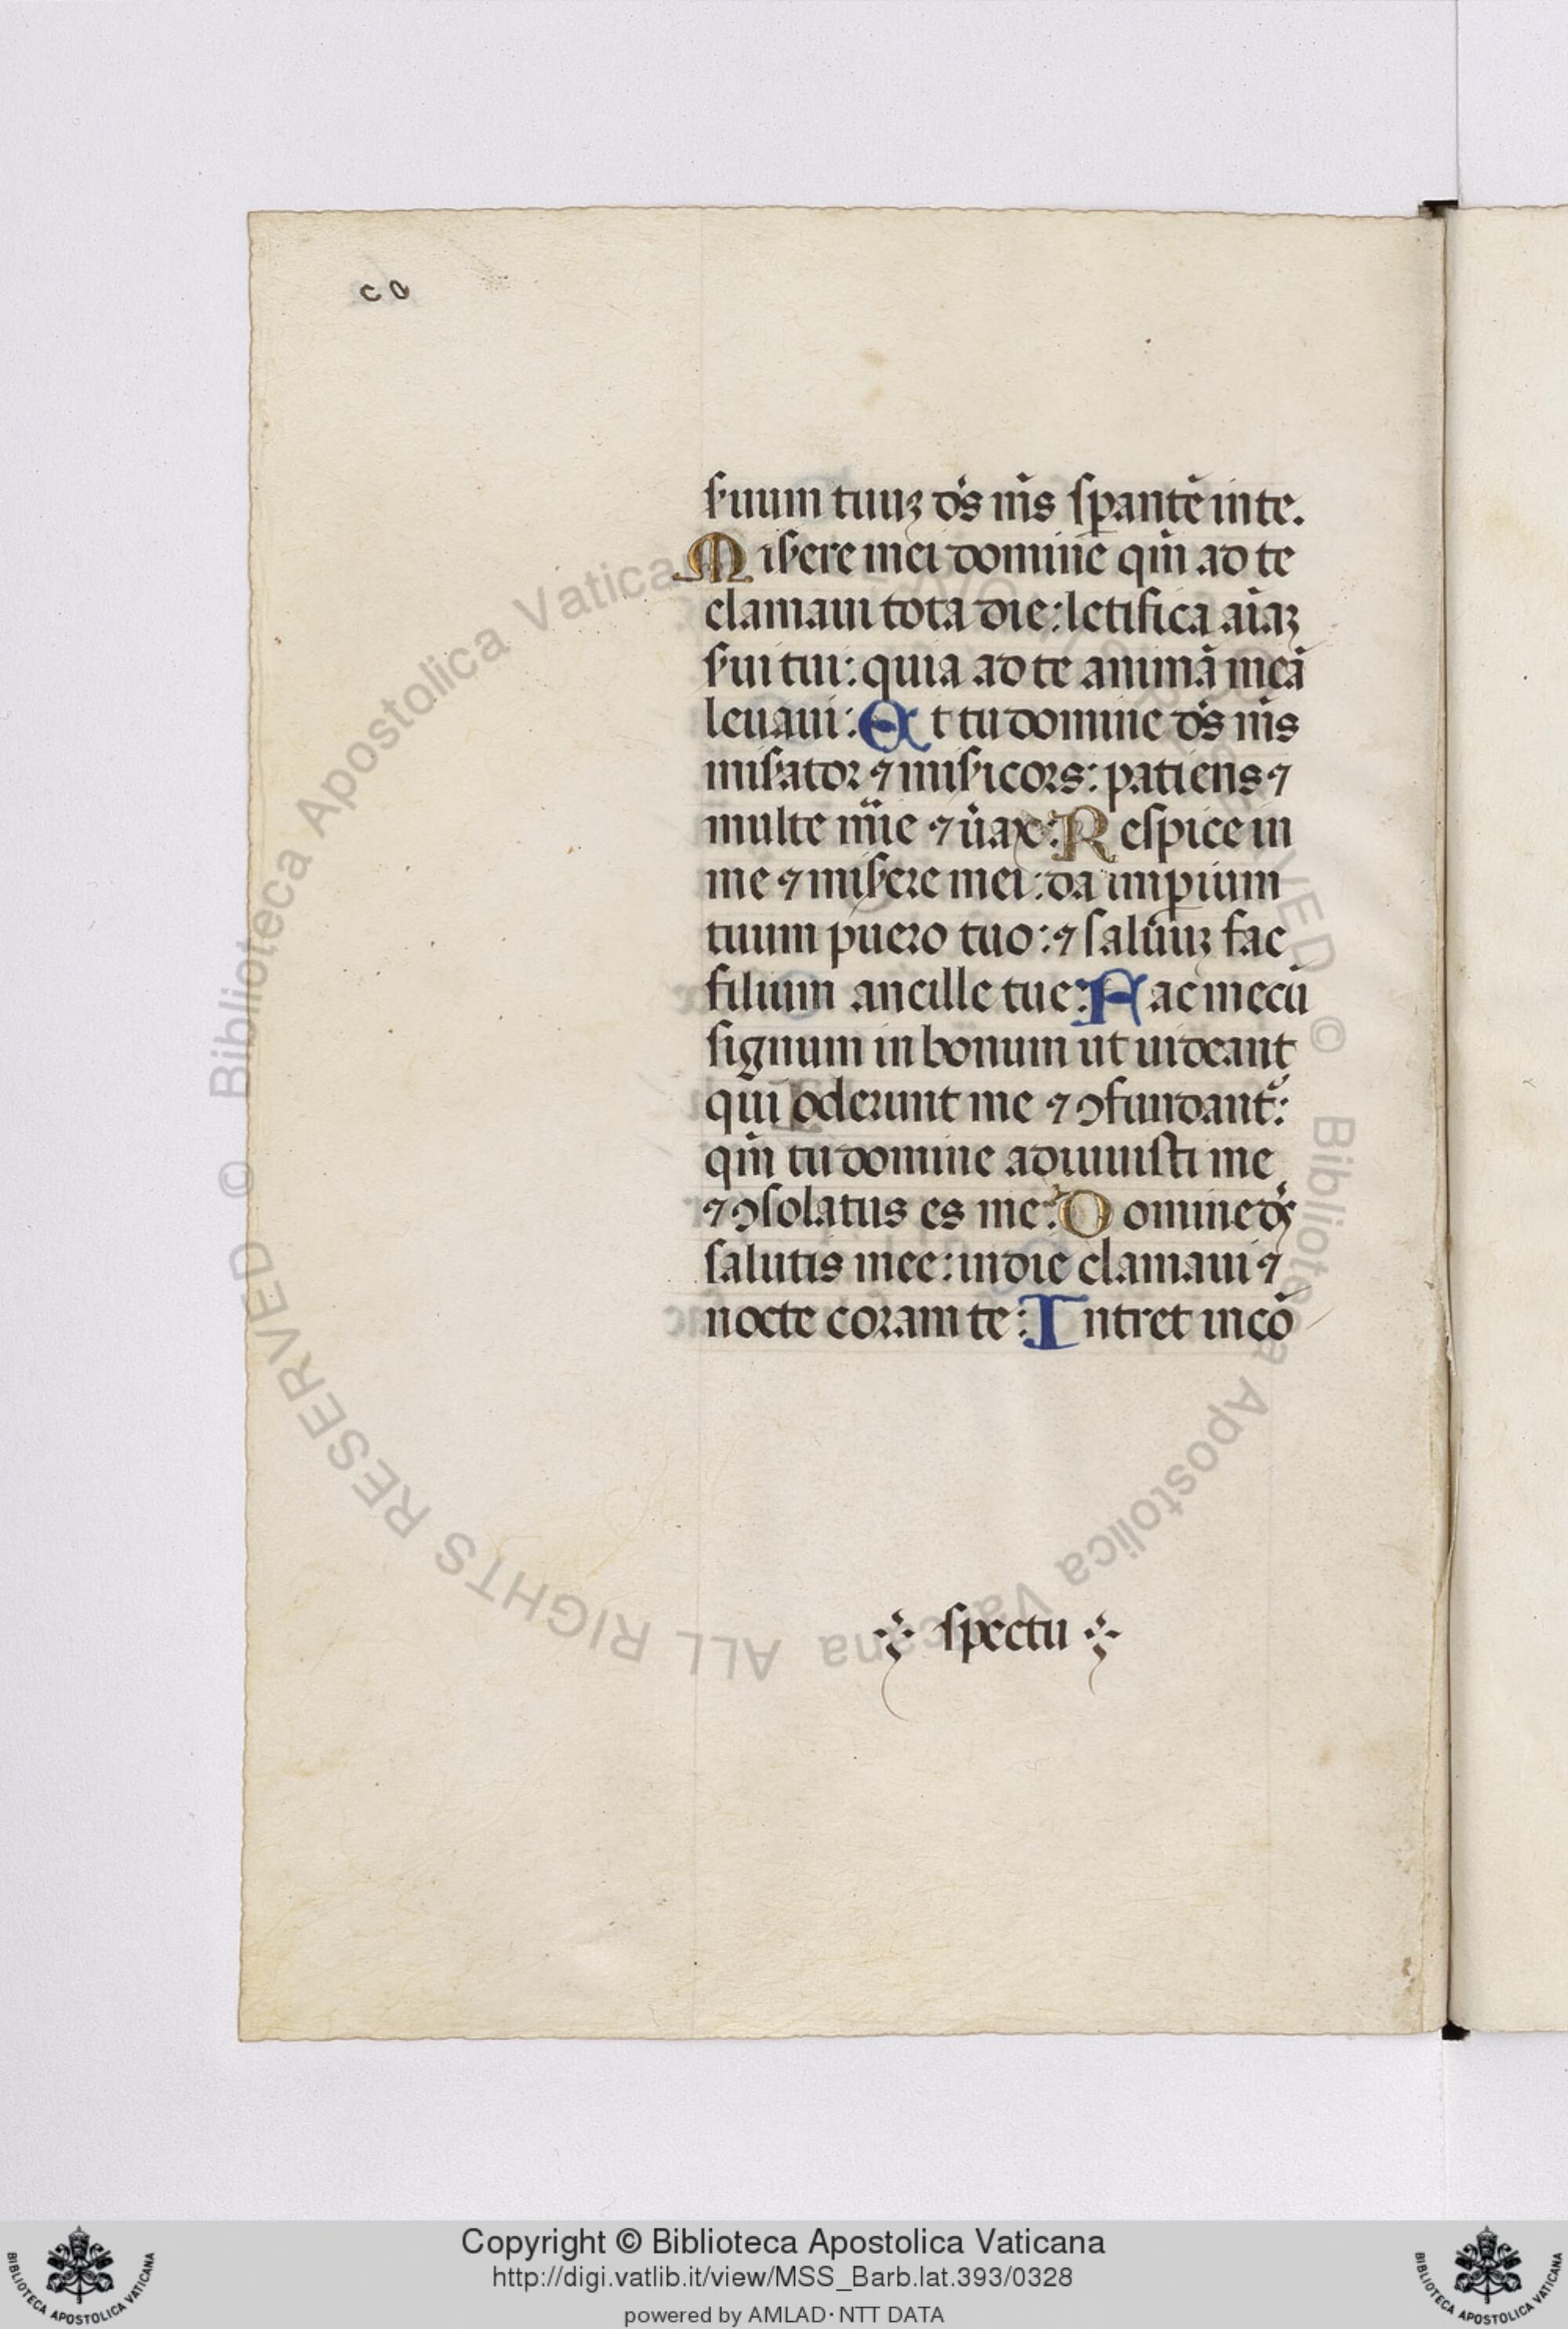 c a
ſ̕uum tuuꝫ ds̄ nr̄s ſꝑantē in te.
Miſ̕ere mei domine qm̄ ad te
clamaui tota die: letifica aīaꝫ
ſ̕ui tui: quia ad te animā meā
leuaui: Et tu domine ds̄ nr̄s
miſ̕ator ⁊ miſ̕icors: patiens ⁊
multe mīe ⁊ u̕ax: Reſpice in
me ⁊ miſ̕ere mei: da imꝑium
tuum puero tuo: ⁊ ſalūuꝫ fac
filium ancille tue: Fac mecū
ſignum in bonum ut uideant
qui oderunt me ⁊ ꝯfundant᷑:
qm̄ tu domine adiuuiſti me
⁊ ꝯſolatus es me: Domine ds̄
ſalutis mee: in die clamaui ⁊
nocte coram te: Intret in cō
ſpectu
© Biblioteca Apostolica Vaticana ALL RIGHTS RESERVED
Copyright © Biblioteca Apostolica Vaticana
http://digi.vatlib.it/view/MSS_Barb.lat.393/0328
powered by AMLAD·NTT DATA
BIBLIOTECA APOSTOLICA VATICANA
BIBLIOTECA APOSTOLICA VATICANA